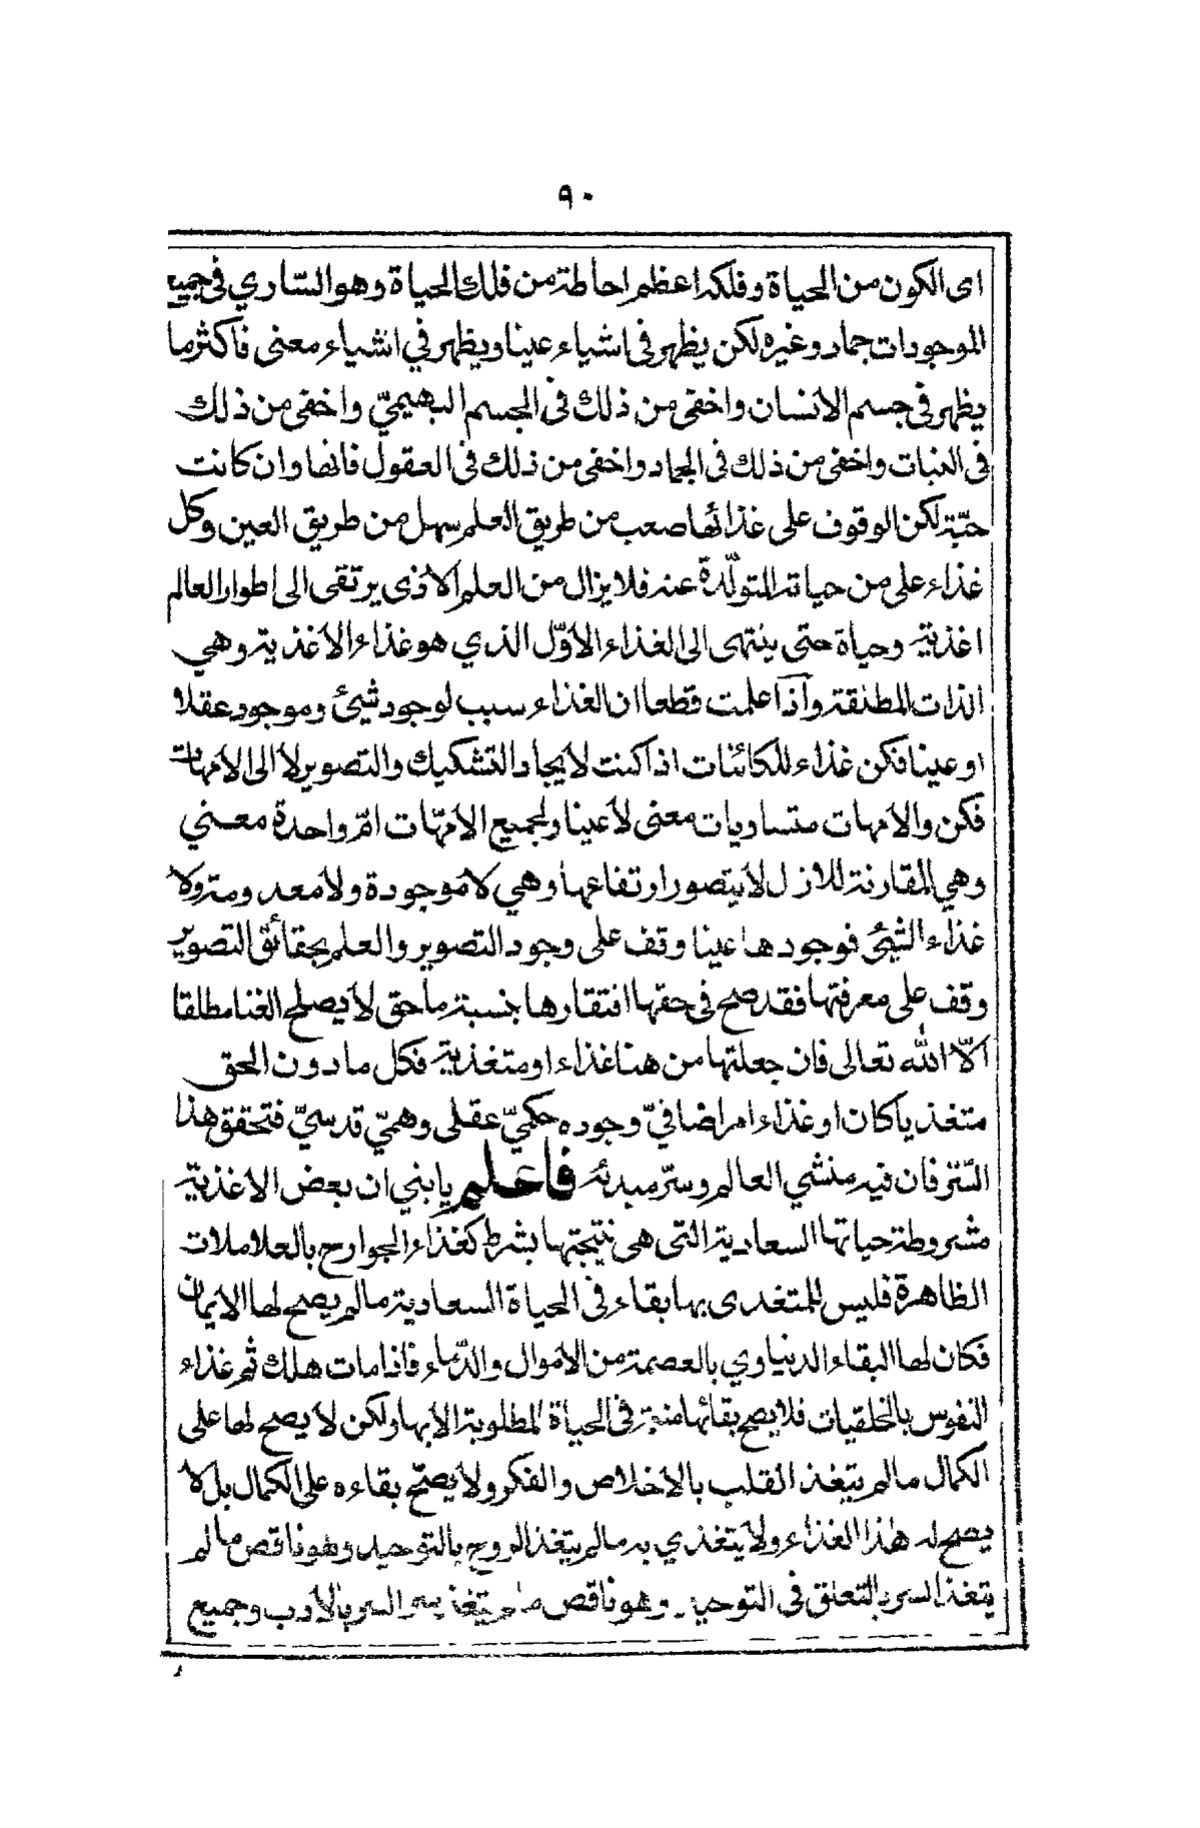 ٩٠
اى الكون من الحياة وفلكه اعظم احاطة من فلك الحياة وهو السّاري فى جميع
الموجودات جماد وغيره لكن يظهر فى اشياء عينا ويظهر في اشياء معنى فاكثر ما
يظهر فى جسم الانسان واخفى من ذلك فى الجسم البهيميّ واخفى من ذلك
فى النبات واخفى من ذلك فى الجماد واخفى من ذلك فى العقول فانها وان كانت
حيّة لكن الوقوف على غذائها صعب من طريق العلم سهل من طريق العين وكل
غذاء على من حياته المتولّدة عنه فلا يزال من العلم الاذى يرتقى الى اطوار العالم
اغذية وحياة حتى ينتهى الى الغذاء الاوّل الذي هو غذاء الاغذية وهي
الذات المطلقة وآذا علمت قطعا ان الغذاء سبب لوجود شيئ وموجود عقلا
او عينا فكن غذاء للكائنات اذا كنت لايجاد التشكيك والتصوير لا الى الامهات
فكن والامهات متساويات معنى لا عينا ولجميع الامّهات امّ واحدة معنى
وهي المقارنة للازل لا يتصور ارتفاعها وهي لا موجودة ولا معدومة ولا
غذاء الشيئ فوجودها عينا وقف على وجود التصوير والعلم بحقائق التصوير
وقف على معرفتها فقد صح فى حقها افتقارها بنسبة ما حق لا يصلح الغنا مطلقا
الّا الله تعالى فان جعلتها من هنا غذاء او متغذية فكل ما دون الحق
متغذيا كان او غذاء امر اضافيّ وجوده حكميّ عقلى وهميّ قدسيّ فتحقق هذا
السّر فان فيه منشئ العالم وسرّ مبدئه فاعلم يا بني ان بعض الاغذية
مشروطة حياتها السعادية التى هى نتيجتها بشرط كغذاء الجوارح بالعلاملات
الظاهرة فليس للمتغدى بها بقاء فى الحياة السعادية ما لم يصح لها الايمان
فكان لها البقاء الدنياوي بالعصمة من الاموال والدّماء فاذا مات هلك ثم غذاء
النفوس بالخلقيات فلا يصح بقائها منه فى الحياة المطلوبة الابها ولكن لا يصح لها على
الكمال ما لم يتغذ القلب بالاخلاص والفكر ولا يصحّ بقاءه على الكمال بل لا
يصح له هذا الغذاء ولا يتغذي به ما لم يتغذ الروح بالتوحيد وهو ناقص ما لم
يتغذ السر بالتعلق فى التوحيد وهو ناقص ما لم يتغذ سر السر بالادب وجميع